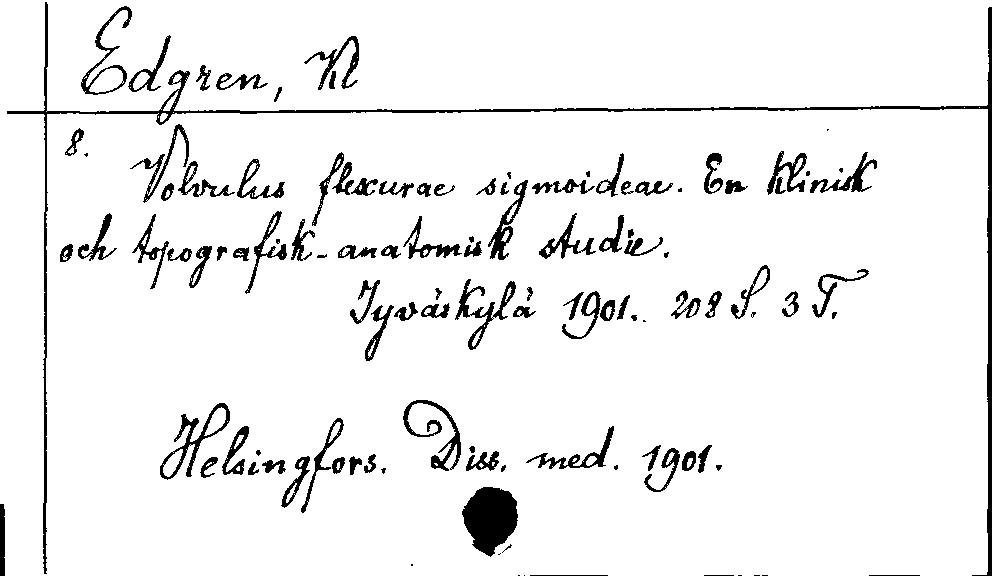 Edgren, Kl
8.
Volvulus flexurae sigmoideae. En klinisk
och topografisk-anatomisk studie.
Jyväskylä 1901. 208 S. 3 T.
Helsingfors. Diss. med. 1901.